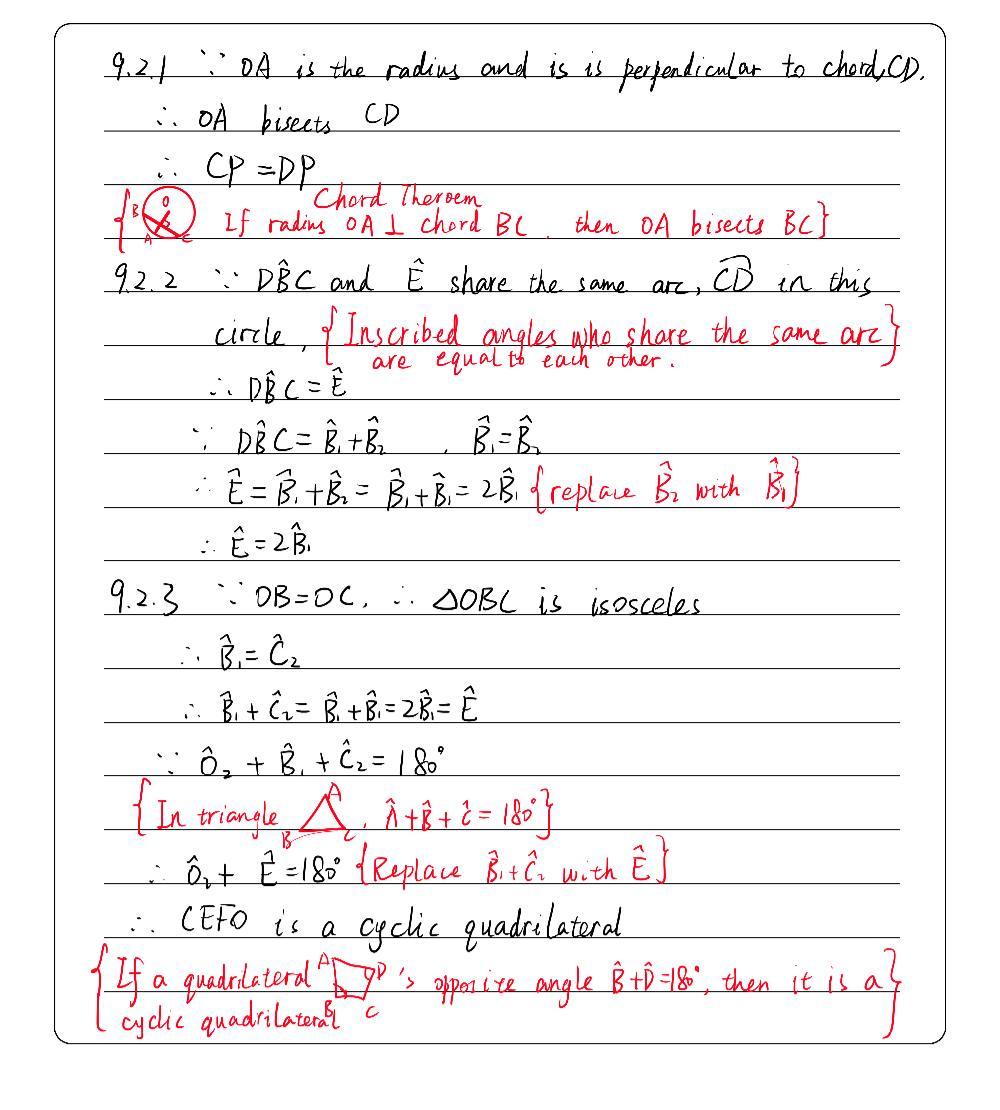 9.2.1 ∵ OA is the radius and is is perpendicular to chord, CD.
∴ OA bisects CD
∴ CP = DP
Chord Theroem
B O A C
{ If radius OA ⊥ chord BC. then OA bisects BC}
9.2.2 ∵ DB̂C and Ê share the same arc, C͡D in this
circle, {Inscribed angles who share the same arc}
are equal to each other.
∴ DB̂C = Ê
∵ DB̂C = B̂₁ + B̂₂ , B̂₁ = B̂₂
∴ Ê = B̂₁ + B̂₂ = B̂₁ + B̂₁ = 2B̂₁ {replace B̂₂ with B̂₁}
∴ Ê = 2B̂₁
9.2.3 ∵ OB = OC, ∴ △OBC is isosceles
∴ B̂₁ = Ĉ₂
∴ B̂₁ + Ĉ₂ = B̂₁ + B̂₁ = 2B̂₁ = Ê
∵ Ô₂ + B̂₁ + Ĉ₂ = 180°
{In triangle A B C , Â + B̂ + ĉ = 180°}
∴ Ô₂ + Ê = 180° {Replace B̂₁ + Ĉ₂ with Ê}
∴ CEFO is a cyclic quadrilateral
{If a quadrilateral A B C D 's opposite angle B̂ + D̂ = 180°, then it is a}
cyclic quadrilateral